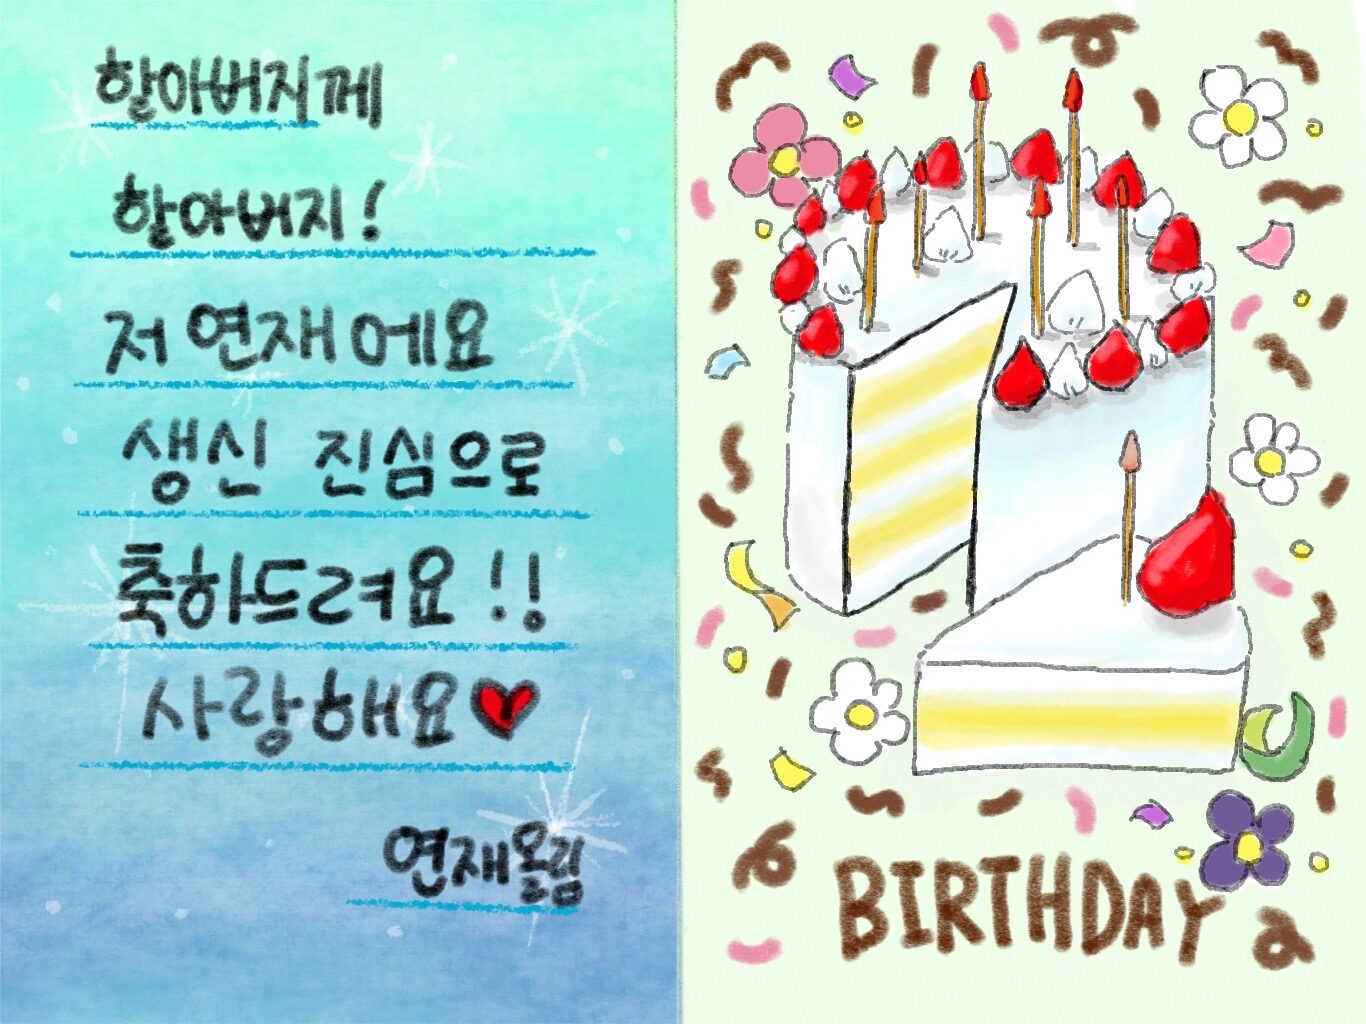 할아버지께
할아버지!
저 연재에요
생신 진심으로
축하드려요!!
사랑해요♥
연재올림
BIRTHDAY